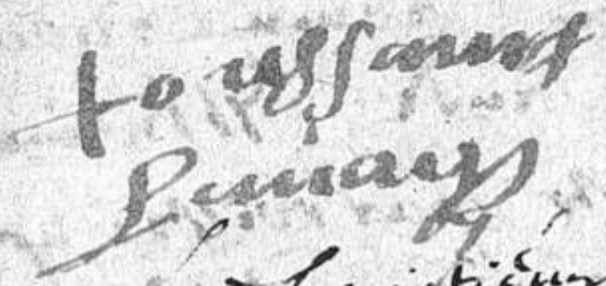 toussainct
Lemay